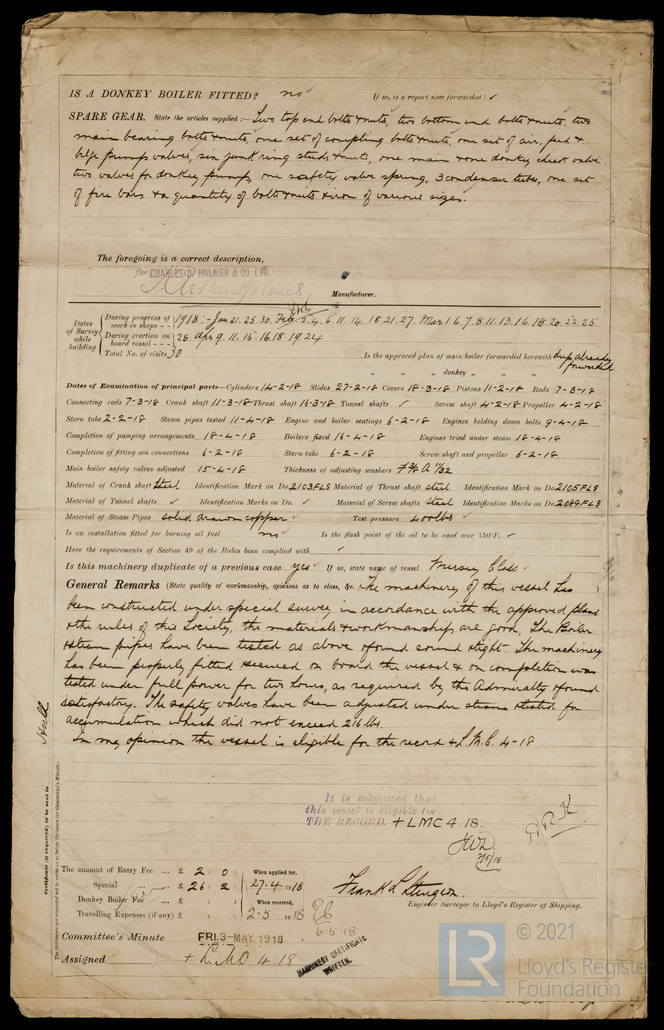 IS A DONKEY BOILER FITTED? no If so, is a report now forwarded? ✓
SPARE GEAR. State the articles supplied:— Two top end bolts & nuts, two bottom end bolts & nuts, two
main bearing bolts & nuts, one set of coupling bolts & nuts, one set of air, feed &
bilge pump valves, six junk ring studs & nuts, one main & one donkey check valve
two valves for donkey pump, one safety valve spring, 3 condenser tubes, one set
of fire bars & a quantity of bolts & nuts & iron of various sizes.
The foregoing is a correct description,
for CHARLES D. HOLMES & Co. LTD.
Manufacturer.
Dates of Survey while building
During progress of work in shops - - 1918:- Jan 21. 25. 30. Feb 2. 4. 6. 11. 14. 18. 21. 27. Mar 1. 6. 7. 8. 11. 13. 16. 18. 20. 22. 25
During erection on board vessel - - - 28. Apr 9. 11. 15. 16. 18. 19. 24
Total No. of visits 30
Is the approved plan of main boiler forwarded herewith dup already forwarded
" " " donkey " " "
Dates of Examination of principal parts—Cylinders 14-2-18 Slides 27-2-18 Covers 18-3-18 Pistons 11-2-18 Rods 7-3-18
Connecting rods 7-3-18 Crank shaft 11-3-18 Thrust shaft 16-3-18 Tunnel shafts ✓ Screw shaft 4-2-18 Propeller 4-2-18
Stern tube 2-2-18 Steam pipes tested 11-4-18 Engine and boiler seatings 6-2-18 Engines holding down bolts 9-4-18
Completion of pumping arrangements 18-4-18 Boilers fixed 16-4-18 Engines tried under steam 18-4-18
Completion of fitting sea connections 6-2-18 Stern tube 6-2-18 Screw shaft and propeller 6-2-18
Main boiler safety valves adjusted 15-4-18 Thickness of adjusting washers
Material of Crank shaft Steel Identification Mark on Do. 2103FLS Material of Thrust shaft steel Identification Mark on Do. 2105FLS
Material of Tunnel shafts ✓ Identification Marks on Do. ✓ Material of Screw shafts Steel Identification Marks on Do. 2089FLS
Material of Steam Pipes solid drawn copper ✓ Test pressure 400 lbs ✓
Is an installation fitted for burning oil fuel no ✓ Is the flash point of the oil to be used over 150°F. ✓
Have the requirements of Section 49 of the Rules been complied with ✓
Is this machinery duplicate of a previous case yes ✓ If so, state name of vessel Mersey Class ✓
General Remarks (State quality of workmanship, opinions as to class, &c. The machinery of this vessel has )
been constructed under special survey in accordance with the approved plans
& the rules of this Society, the materials & workmanship are good. The Boiler
& steam pipes have been tested as above & found sound & tight. The machinery
has been properly fitted & secured on board the vessel & on completion was
tested under full power for two hours, as required by the Admiralty & found
satisfactory. The safety valves have been adjusted under steam & tested for
accumulation which did not exceed 216 lbs.
In my opinion the vessel is eligible for the record + L.M.C. 4-18
Hull
Certificate (if required) to be sent to
It is submitted that
this vessel is eligible for
THE RECORD. + LMC 4.18.
2/5/18
The amount of Entry Fee ... £ 2 : 0 : When applied for,
Special ... £ 26 : 2 : 27.4.1918
Donkey Boiler Fee ... £ : : When received,
Travelling Expenses (if any) £ : : 2-5-1918
6-5-18
Engineer Surveyor to Lloyd's Register of Shipping.
Committee's Minute FRI. 3 MAY. 1918
Assigned + L.M.C. 4.18
MACHINERY CERTIFICATE
WRITTEN.
© 2021
LR
Lloyd's Register
Foundation